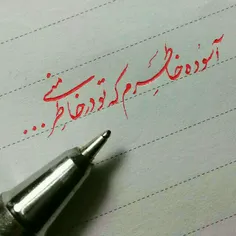 آسوده خاطرم که تو در خاطر منی...